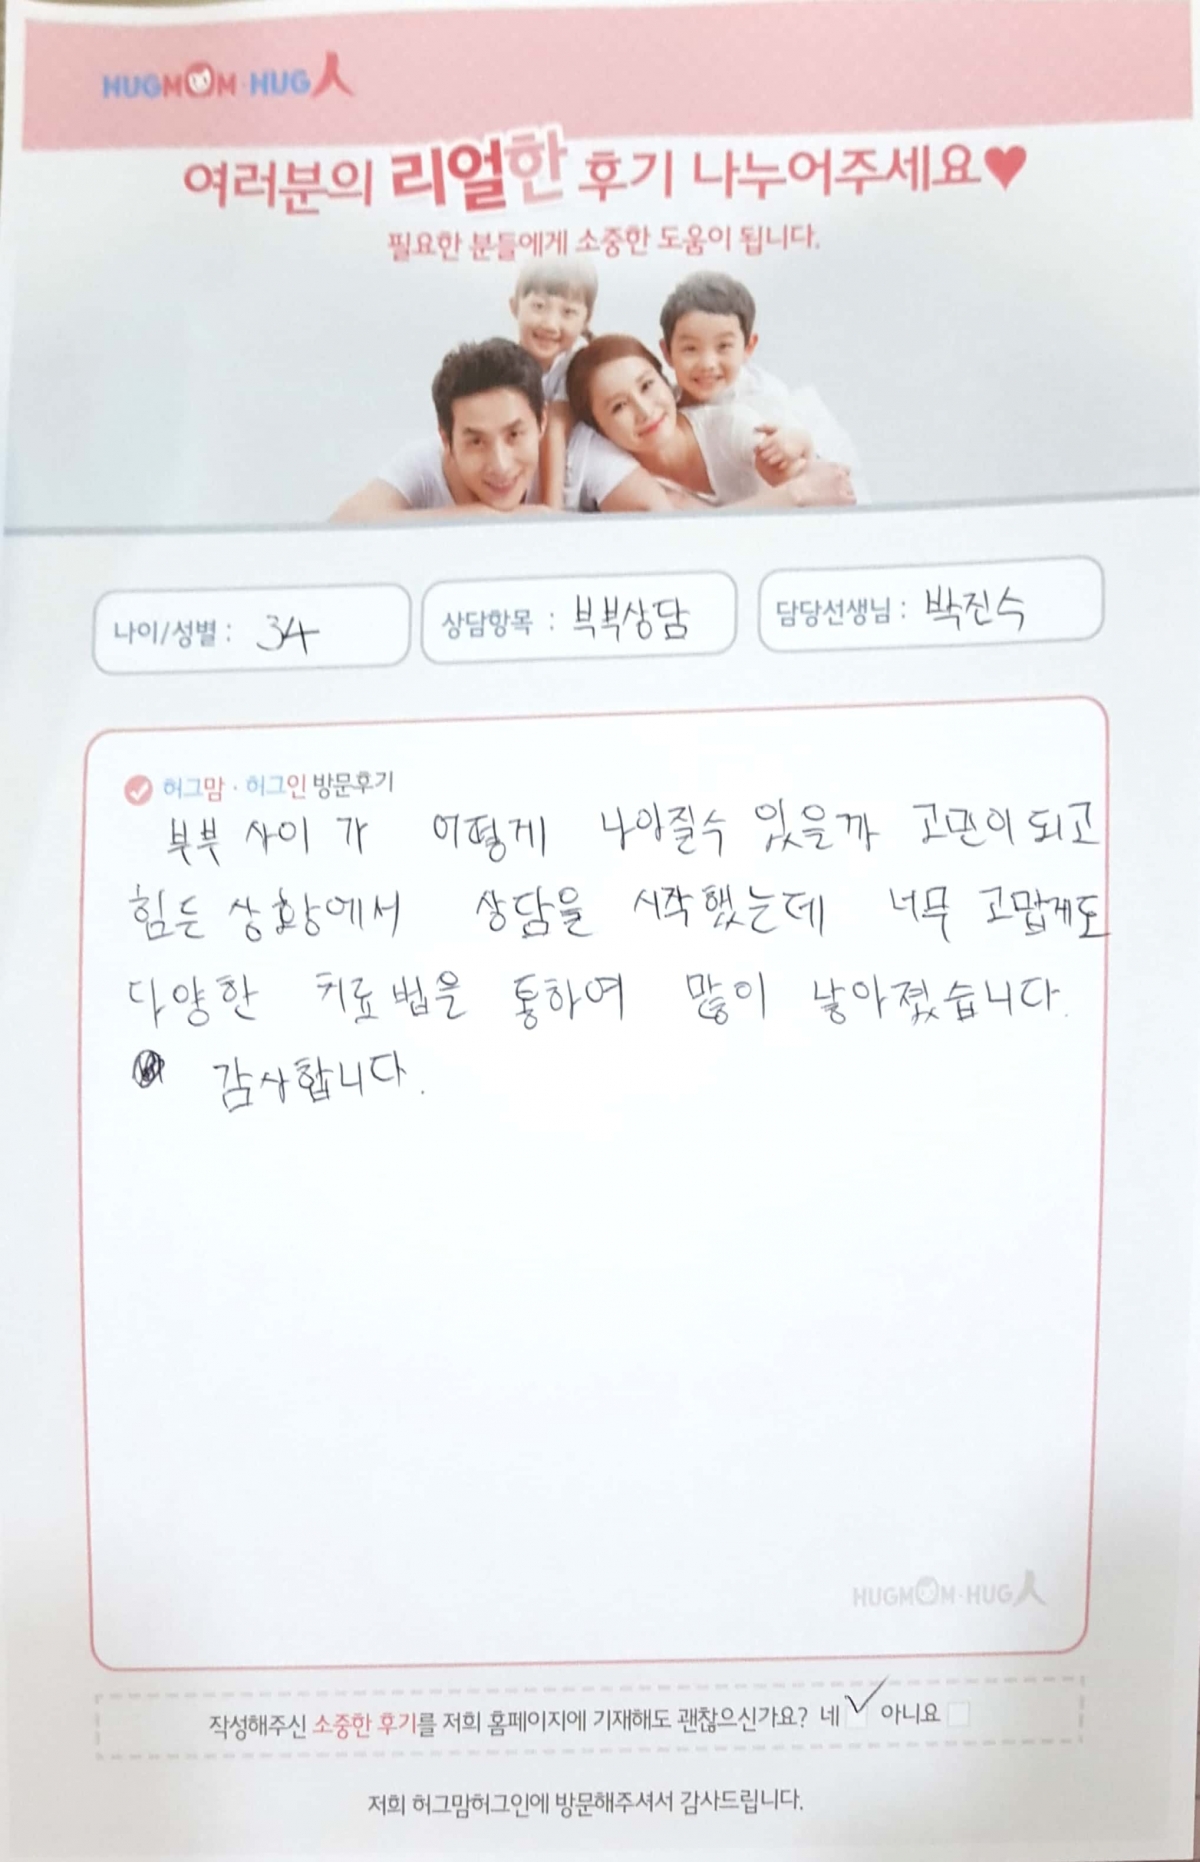 HUGMOM·HUG人
여러분의 리얼한 후기 나누어주세요♥
필요한 분들에게 소중한 도움이 됩니다.
나이/성별 : 34
상담항목 : 부부상담
담당선생님 : 박진수
허그맘·허그인 방문후기
부부 사이 가 어떻게 나아질수 있을까 고민이되고
힘든 상황에서 상담을 시작했는데 너무 고맙게도
다양한 치료법을 통하여 많이 낳아졌습니다.
감사합니다.
HUGMOM·HUG人
작성해주신 소중한 후기를 저희 홈페이지에 기재해도 괜찮으신가요? 네 ✓ 아니요
저희 허그맘허그인에 방문해주셔서 감사드립니다.